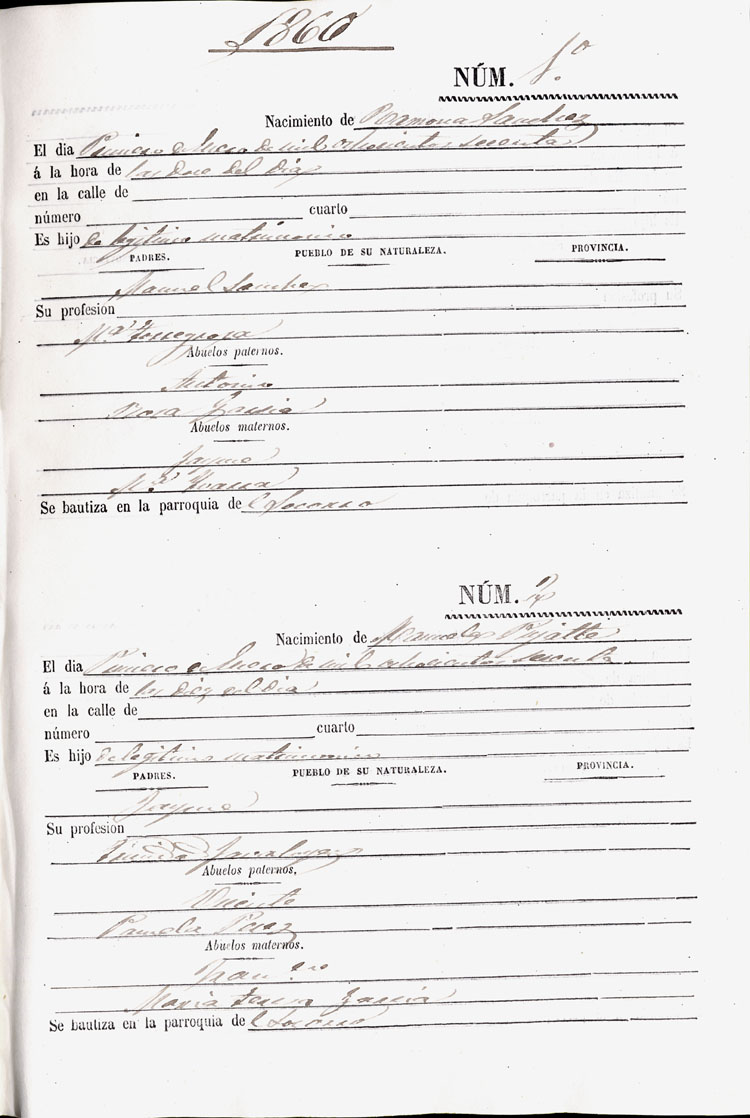 1860
NÚM. 1.º
Nacimiento de Ramona Sanchez
El dia Primero de Enero de mil ochocientos sesenta
á la hora de las doce del dia
en la calle de
número cuarto
Es hijo de legitimo matrimonio
PADRES. PUEBLO DE SU NATURALEZA. PROVINCIA.
Manuel Sanchez
Su profesion
M.ª Torregrosa
Abuelos paternos.
Antonio
Rosa Garcia
Abuelos maternos.
Jayme
M.ª
Se bautiza en la parroquia de el Socorro
NÚM. 2
Nacimiento de Manuela
El dia Primero de Enero de mil ochocientos sesenta
á la hora de las diez del dia
en la calle de
número cuarto
Es hijo de legitimo matrimonio
PADRES. PUEBLO DE SU NATURALEZA. PROVINCIA.
Jayme
Su profesion
Abuelos paternos.
Vicente
Pamela Perez
Abuelos maternos.
Fran.co
Maria Teresa Garcia
Se bautiza en la parroquia de el Socorro